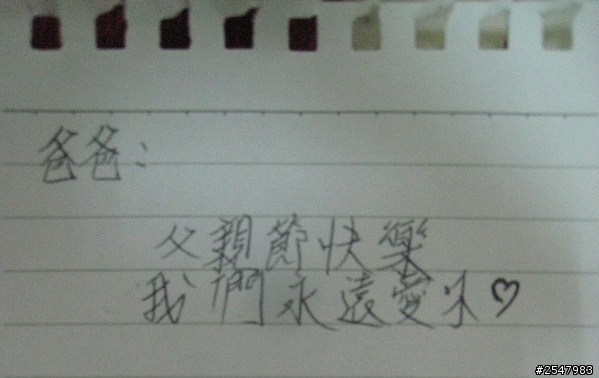 爸爸:
父親節快樂
我們永遠愛你♡
#2547983